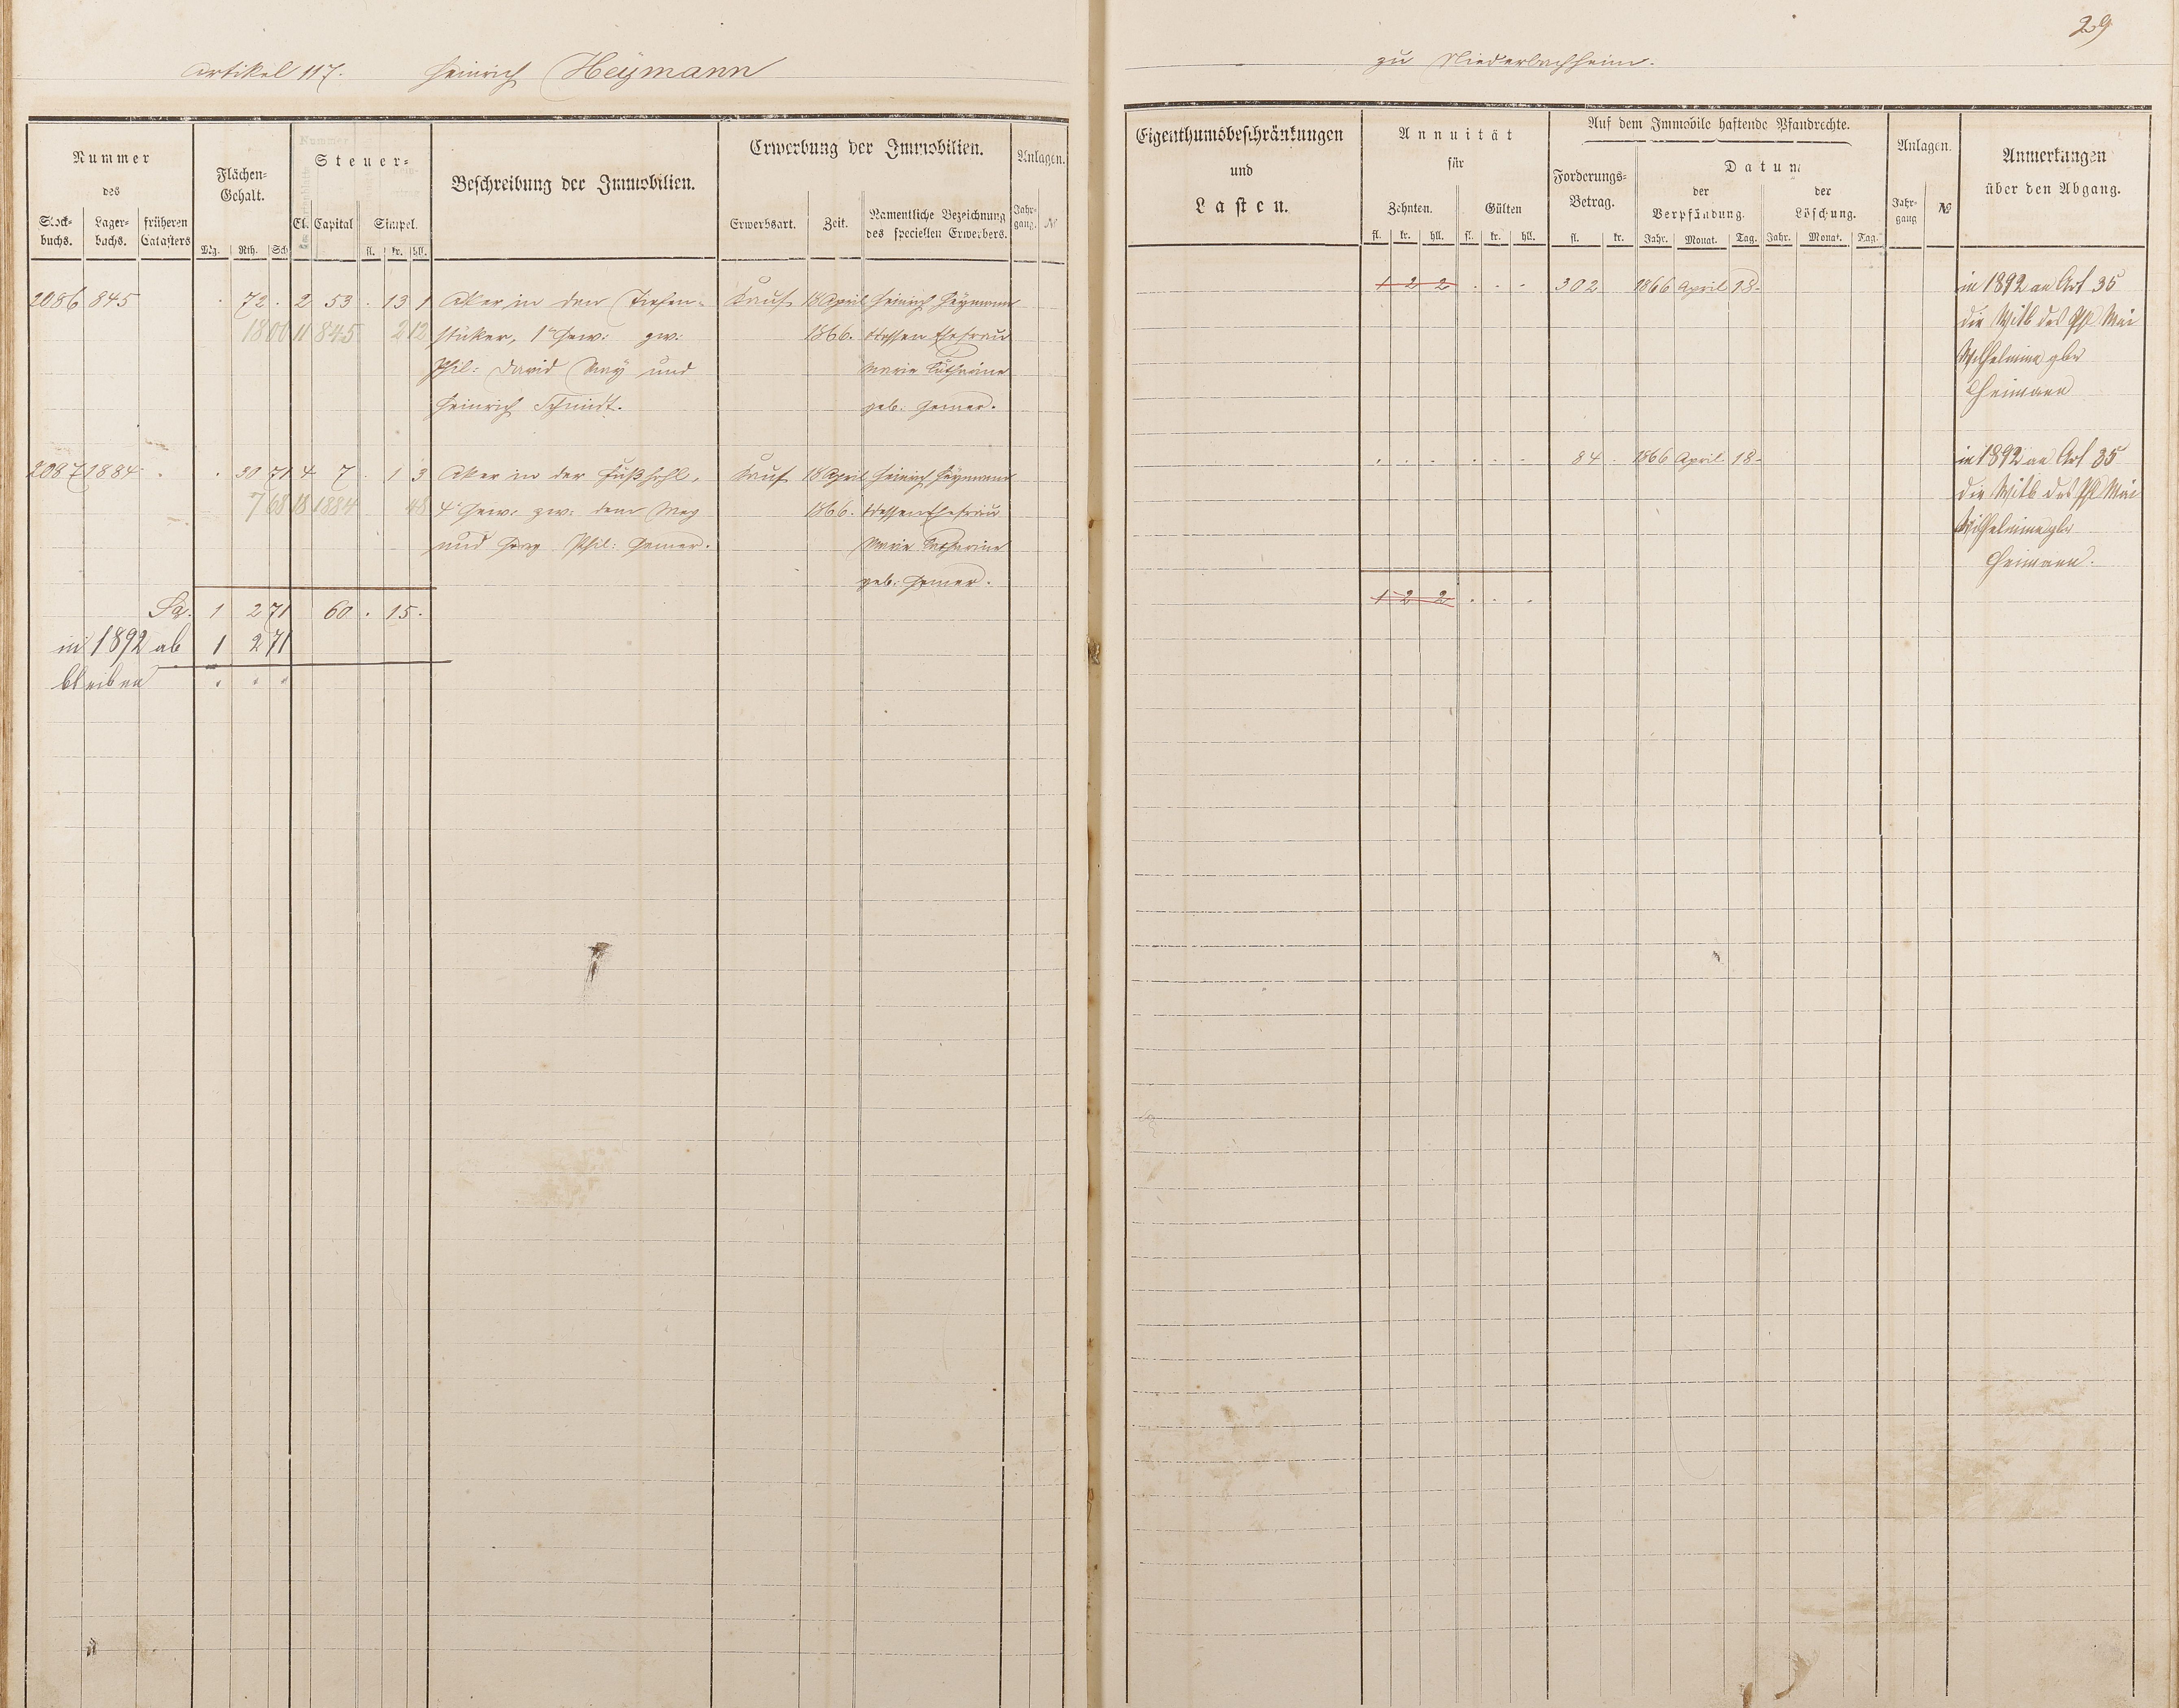 29
Artikel 117. Heinrich Heymann
zu Niederbachheim.
Nummer
des
Stock-
buchs.
Lager-
buchs.
früheren
Catasters
Flächen-
Gehalt.
Mg. Rth. Sch.
Steuer-
Cl. Capital Simpel.
fl. kr. hll.
Beschreibung der Immobilien.
Erwerbung der Immobilien.
Erwerbsart. Zeit.
Namentliche Bezeichnung
des speciellen Erwerbers.
Anlagen.
Jahr-
gang. №
Eigenthumsbeschränkungen
und
Lasten.
Annuität
für
Zehnten. Gülten
fl. kr. hll. fl. kr. hll.
Auf dem Immobile haftende Pfandrechte.
Forderungs-
Betrag.
fl. kr.
Datum
der
Verpfändung.
der
Löschung.
Jahr. Monat. Tag. Jahr. Monat. Tag.
Anlagen.
Jahr-
gang №
Anmerkungen
über den Abgang.
2086 845 . 72 . 2 53 . 13 1 Aker in den Tiefen- Kauf 18 April Heinrich Heymann
1800 11 845 2 12 stüker, 1te Gew: zw: 1866. dessen Ehefrau
Phil: David May und Marie Catharine
Heinrich Schmidt. geb: Gemer.
1 2 2 . . . 302 1866 April 18. in 1892 an Art 35
die Witb des Ph Mai
Wilhelmine gbr
Heimann
2087 1884 . . 30 71 4 7 . 1 3 Aker in der Fußhohl, Kauf 18 April Heinrich Heymann
7 68 18 1884 48 4te Gew: zw: dem Weg 1866. dessen Ehefrau
und Georg Phil: Gemer. Marie Catharine
geb: Gemer.
. . . . . . 84 . 1866 April 18. in 1892 an Art 35
die Witb des Ph Mai
Wilhelmine gbr
Heimann.
Sa. 1 2 71 60 . 15 .
1 2 2 . . .
in 1892 ab 1 2 71
bleiben . . .